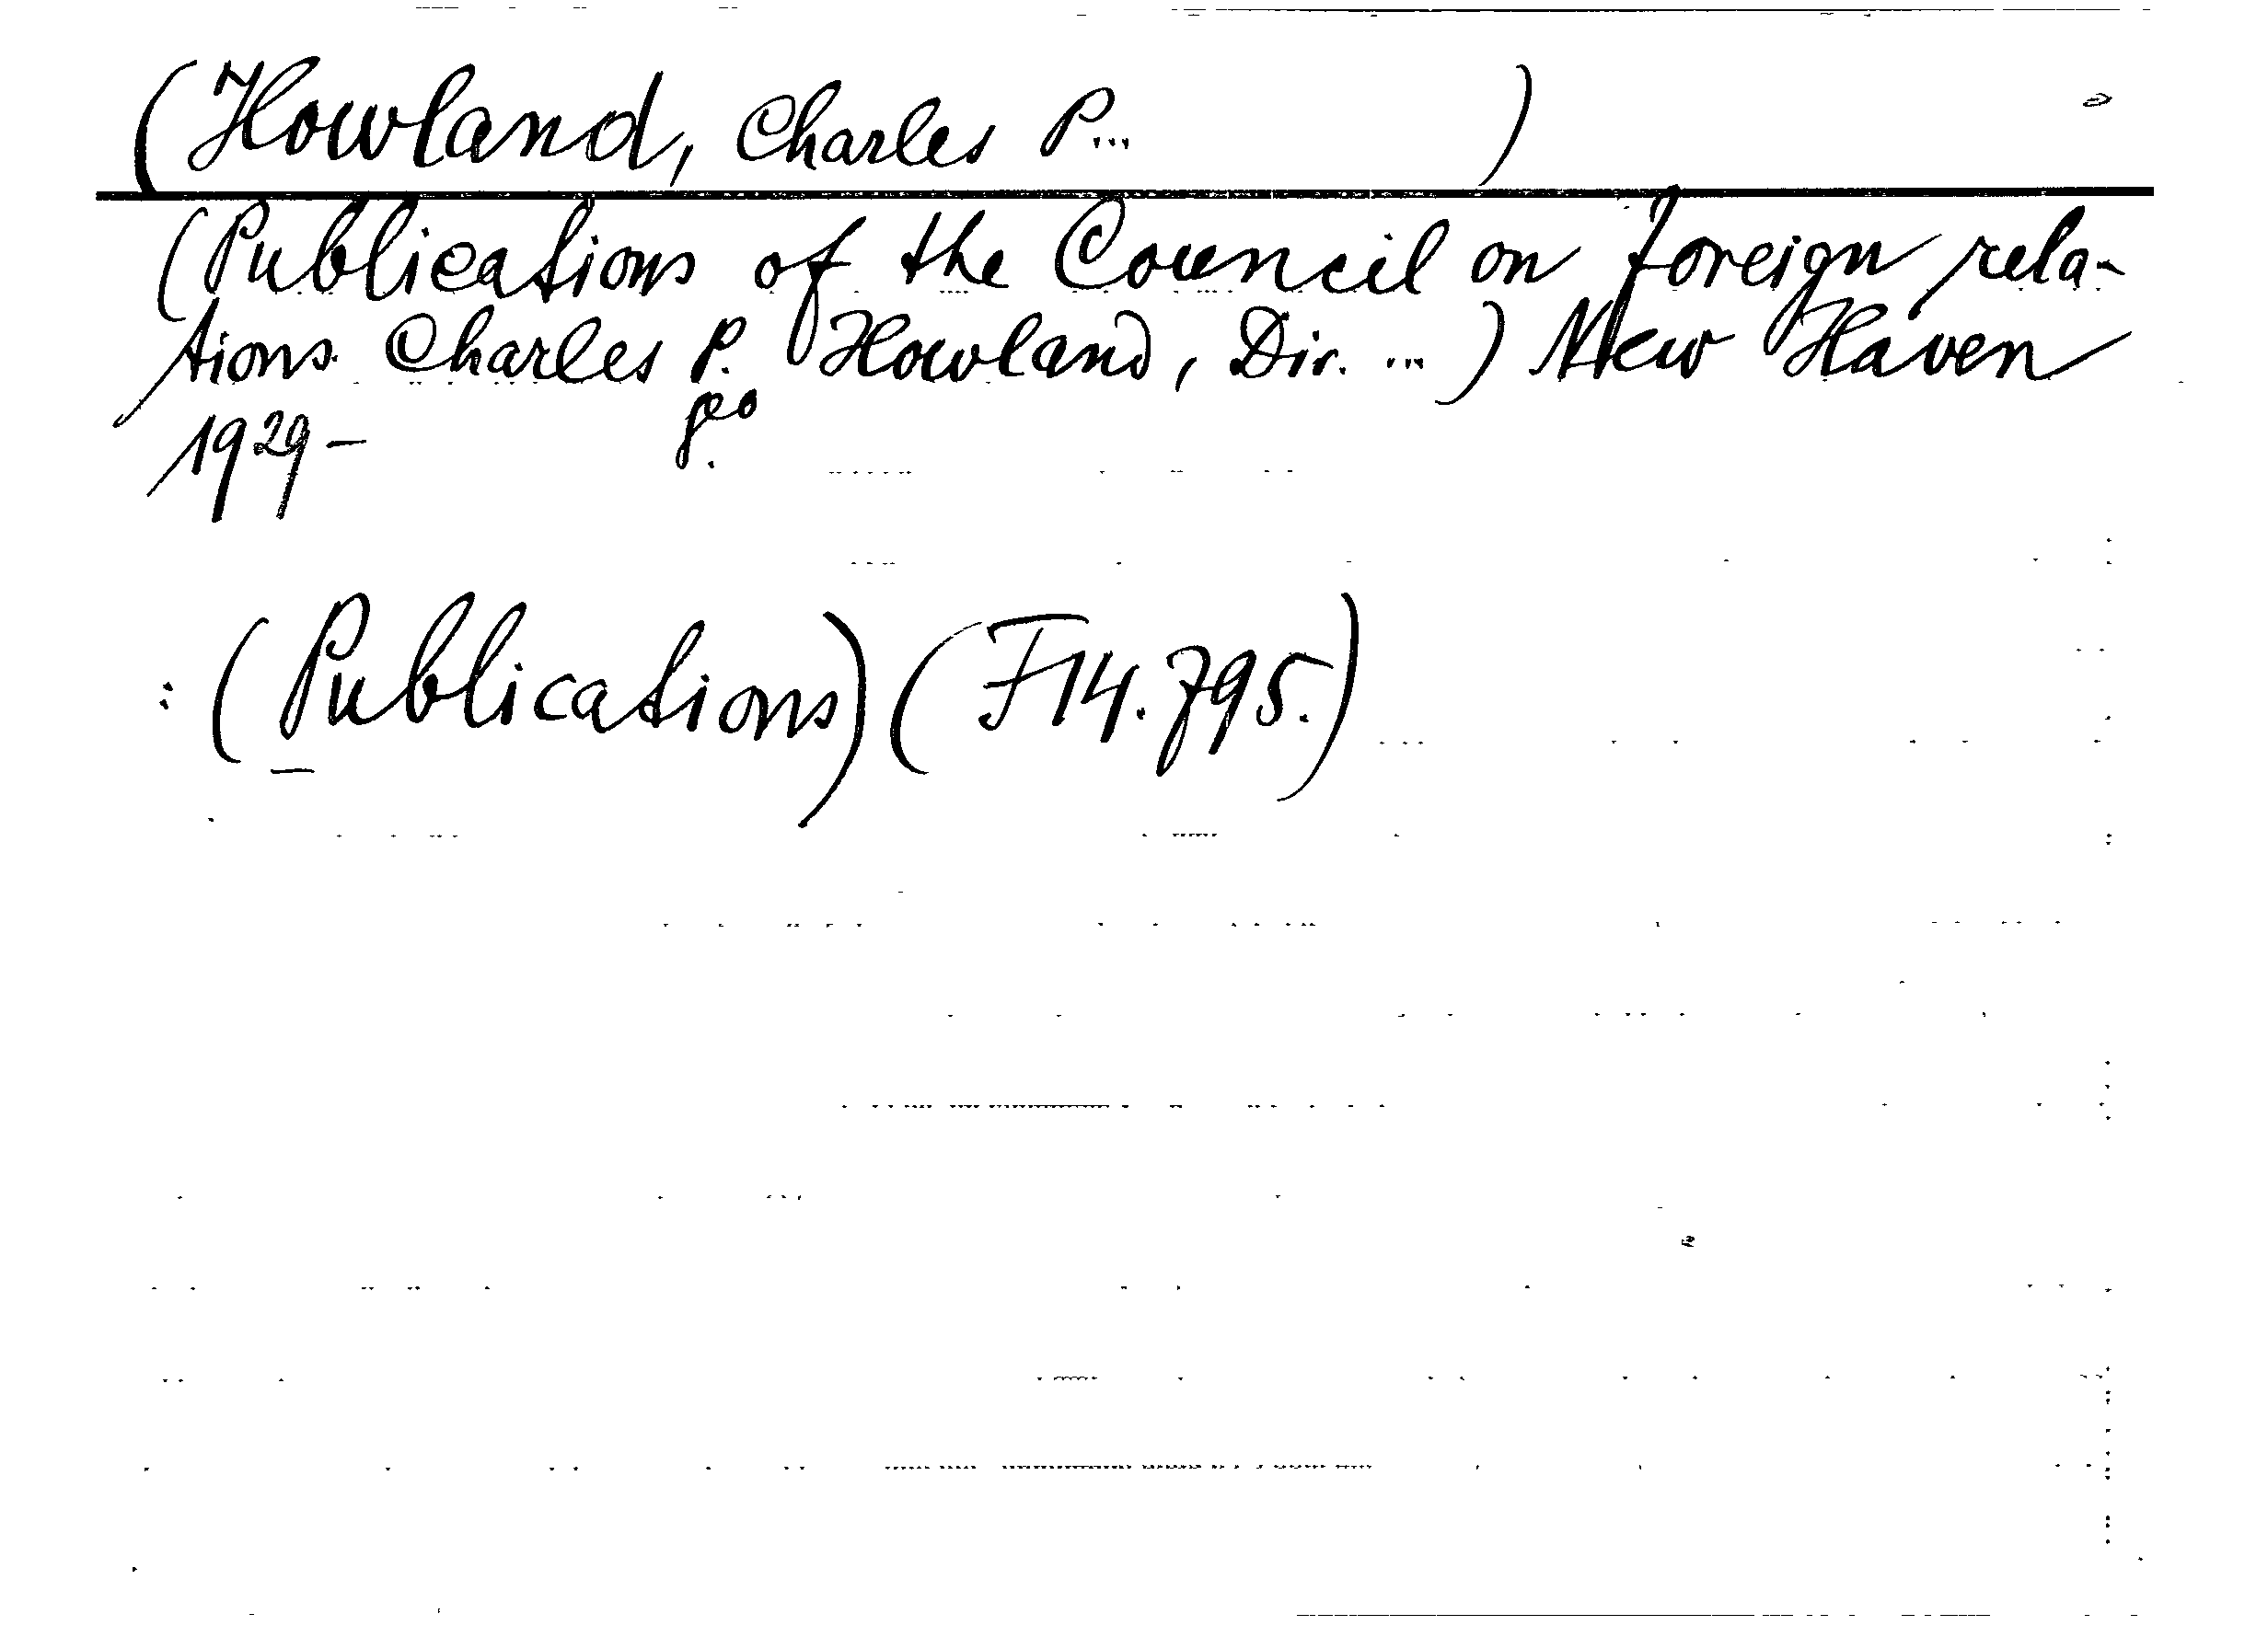 (Howland, Charles P... )
(Publications of the Council on foreign rela-
tions. Charles P. Howland, Dir. ...) New Haven
1929-
: (Publications) (F14.795.)